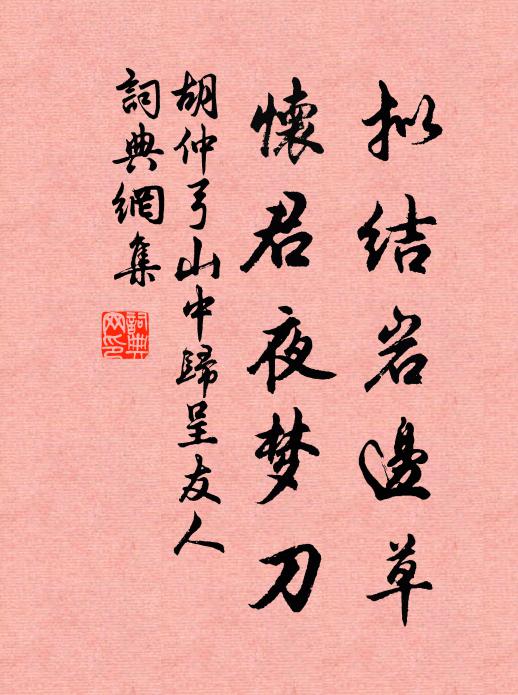 拟结岩邊草
懷君夜梦刀
胡仲弓山中歸呈友人
詞典網集
詞典網印